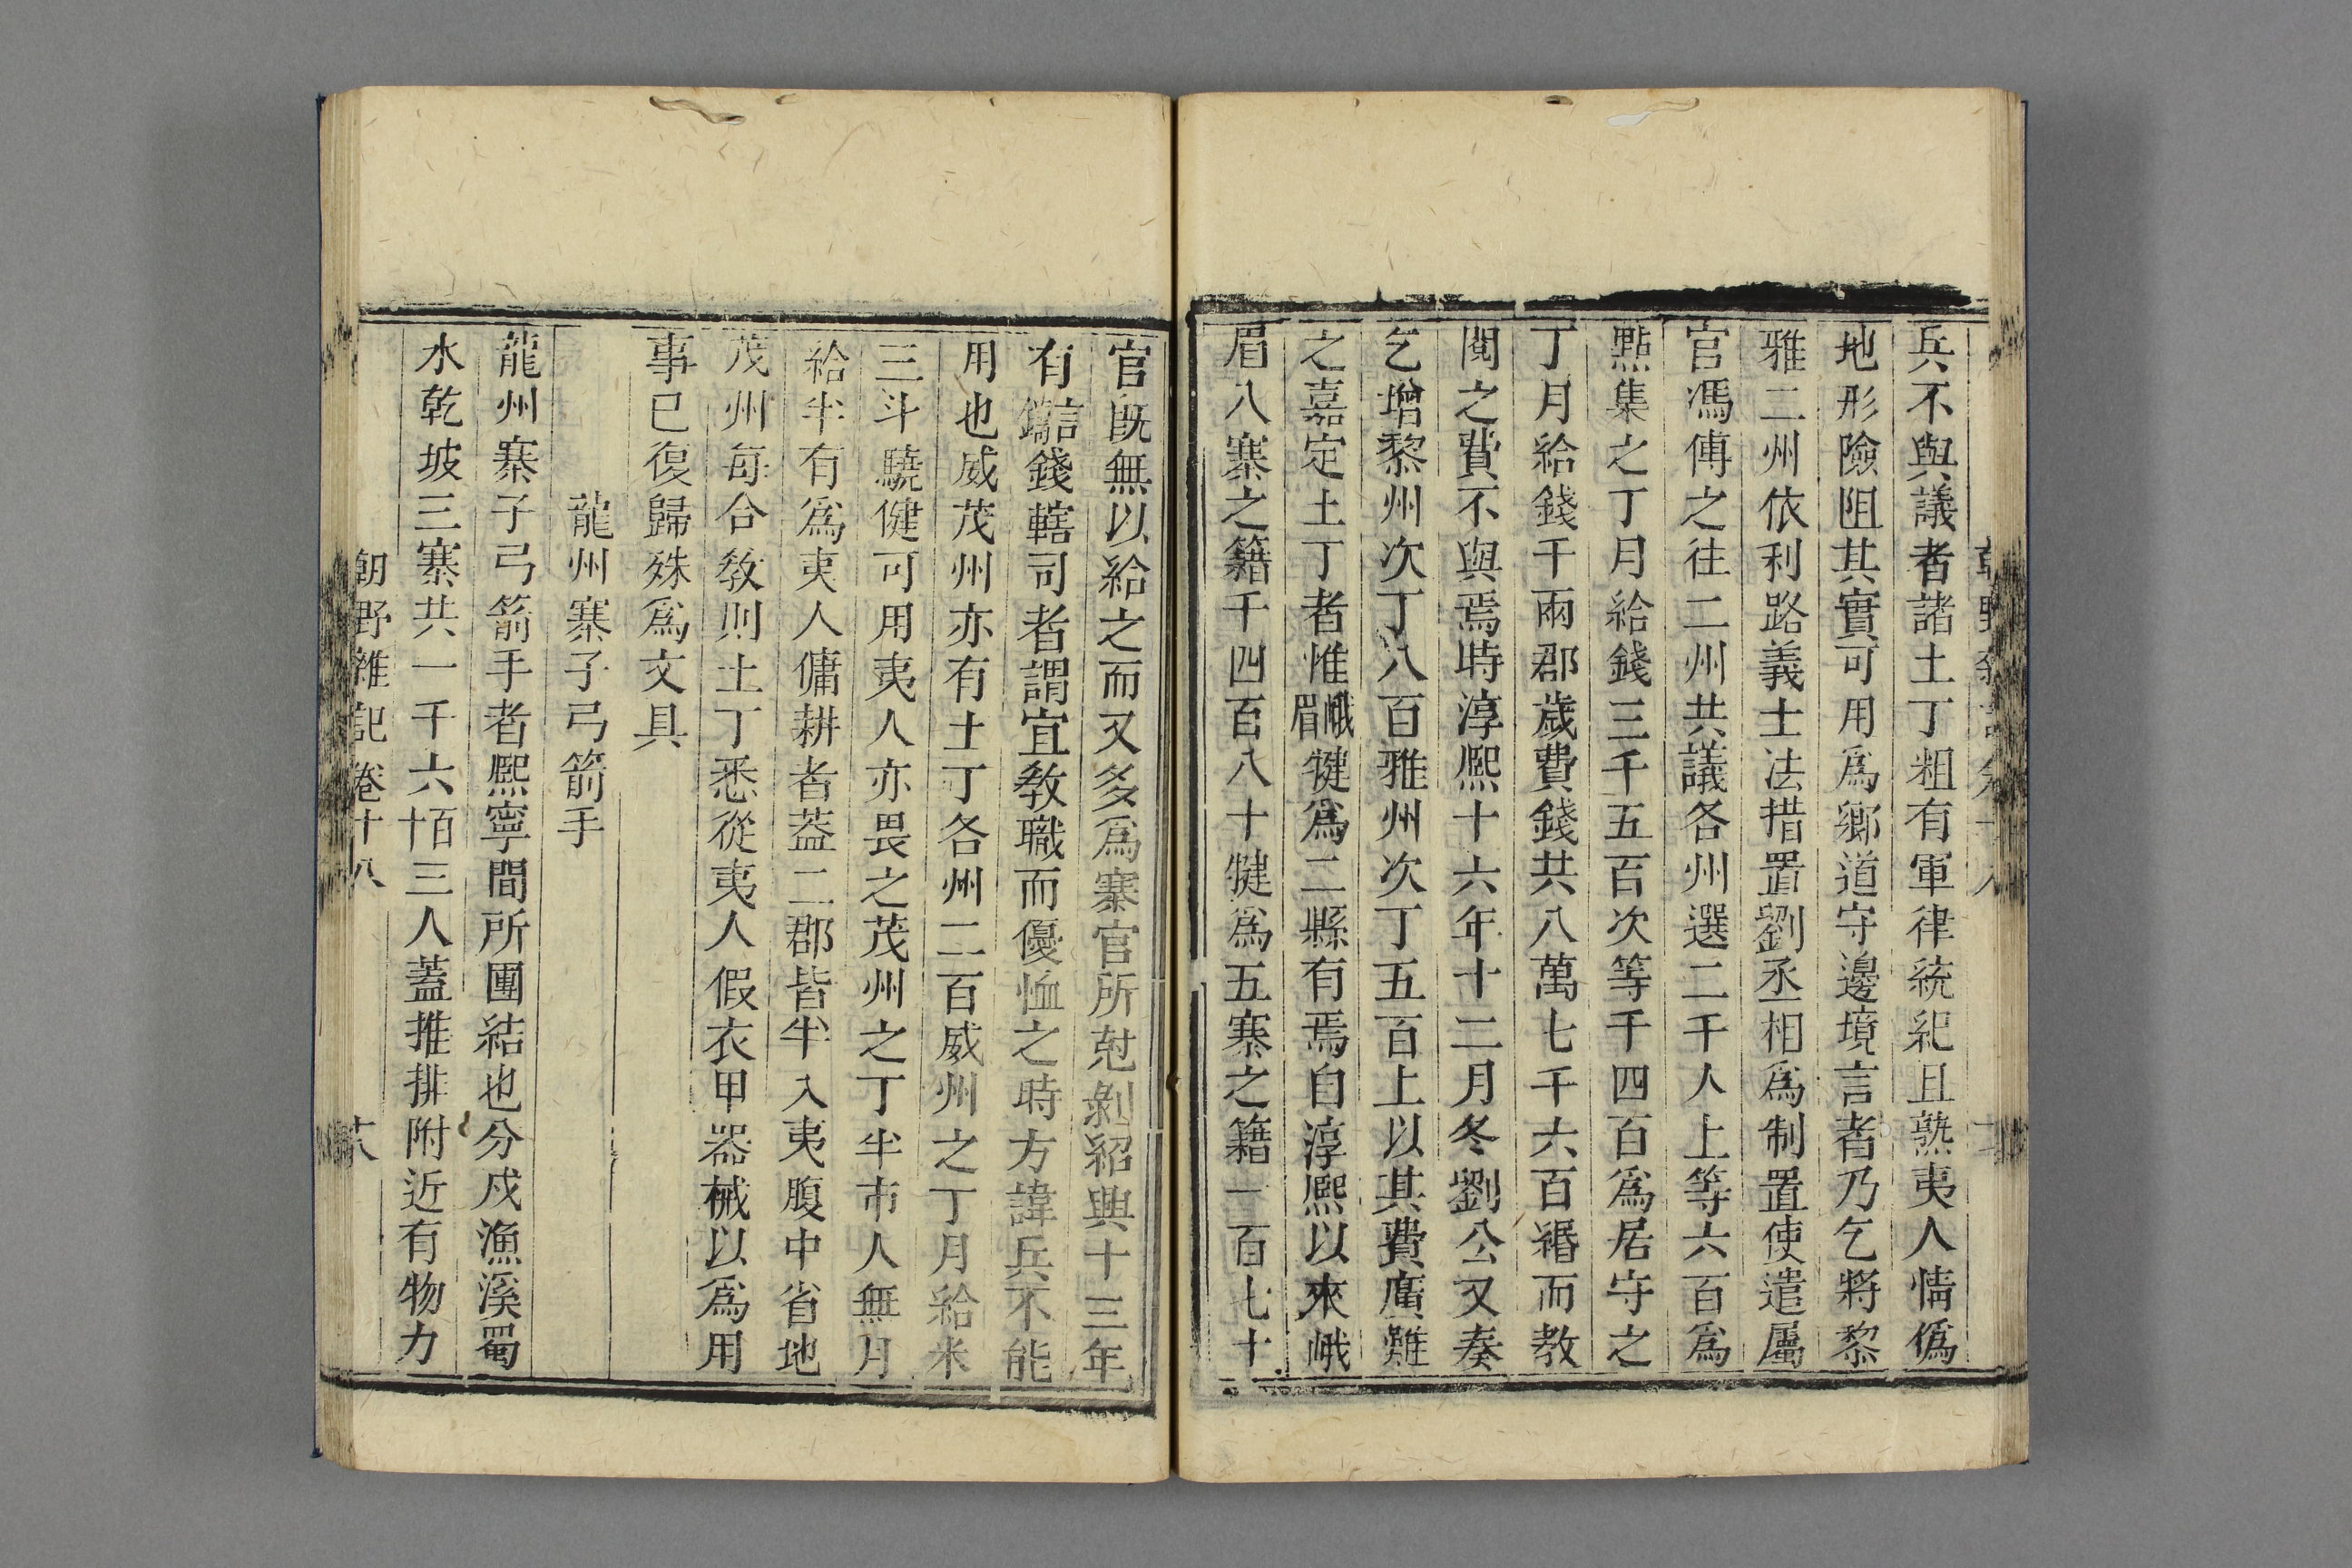 兵不與議者諸土丁粗有軍律統紀且熟夷人情僞
地形險阻其實可用爲鄉道守邊境言者乃乞將黎
雅二州依利路義士法措置劉丞相爲制置使遣屬
官馮傳之往二州共議各州選二千人上等六百爲
點集之丁月給錢三千五百次等千四百爲居守之
丁月給錢千兩郡歲費錢共八萬七千六百緡而教
閱之費不與焉時淳熙十六年十二月冬劉公又奏
乞增黎州次丁八百雅州次丁五百上以其費廣難
之嘉定土丁者惟峨眉犍爲二縣有焉自淳熙以來峨
眉八寨之籍千四百八十犍爲五寨之籍一百七十
官既無以給之而又多爲寨官所尅剝紹興十三年
有言鐫錢轄司者謂宜教職而優恤之時方諱兵不能
用也威茂州亦有土丁各州二百威州之丁月給米
三斗驍健可用夷人亦畏之茂州之丁半市人無月
給半有爲夷人傭耕者蓋二郡皆半入夷腹中省地
茂州每合教則土丁悉從夷人假衣甲器械以爲用
事已復歸殊爲文具
龍州寨子弓箭手
龍州寨子弓箭手者熙寧間所團結也分戍漁溪蜀
水乾坡三寨共一千六百十三人蓋推排附近有物力
朝野雜記卷十八